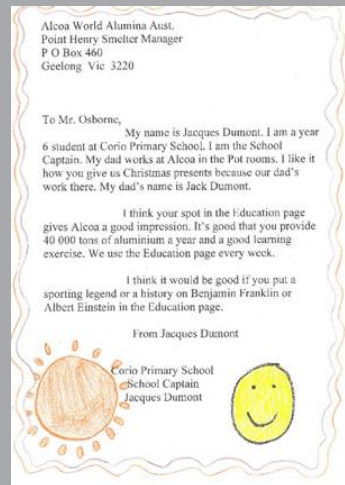 Alcoa World Alumina Aust.
Point Henry Smelter Manager
P O Box 460
Geelong Vic 3220
To Mr. Osborne,
My name is Jacques Dumont. I am a year
6 student at Corio Primary School. I am the School
Captain. My dad works at Alcoa in the Pot rooms. I like it
how you give us Christmas presents because our dad's
work there. My dad's name is Jack Dumont.
I think your spot in the Education page
gives Alcoa a good impression. It's good that you provide
40 000 tons of aluminium a year and a good learning
exercise. We use the Education page every week.
I think it would be good if you put a
sporting legend or a history on Benjamin Franklin or
Albert Einstein in the Education page.
From Jacques Dumont
Corio Primary School
School Captain
Jacques Dumont